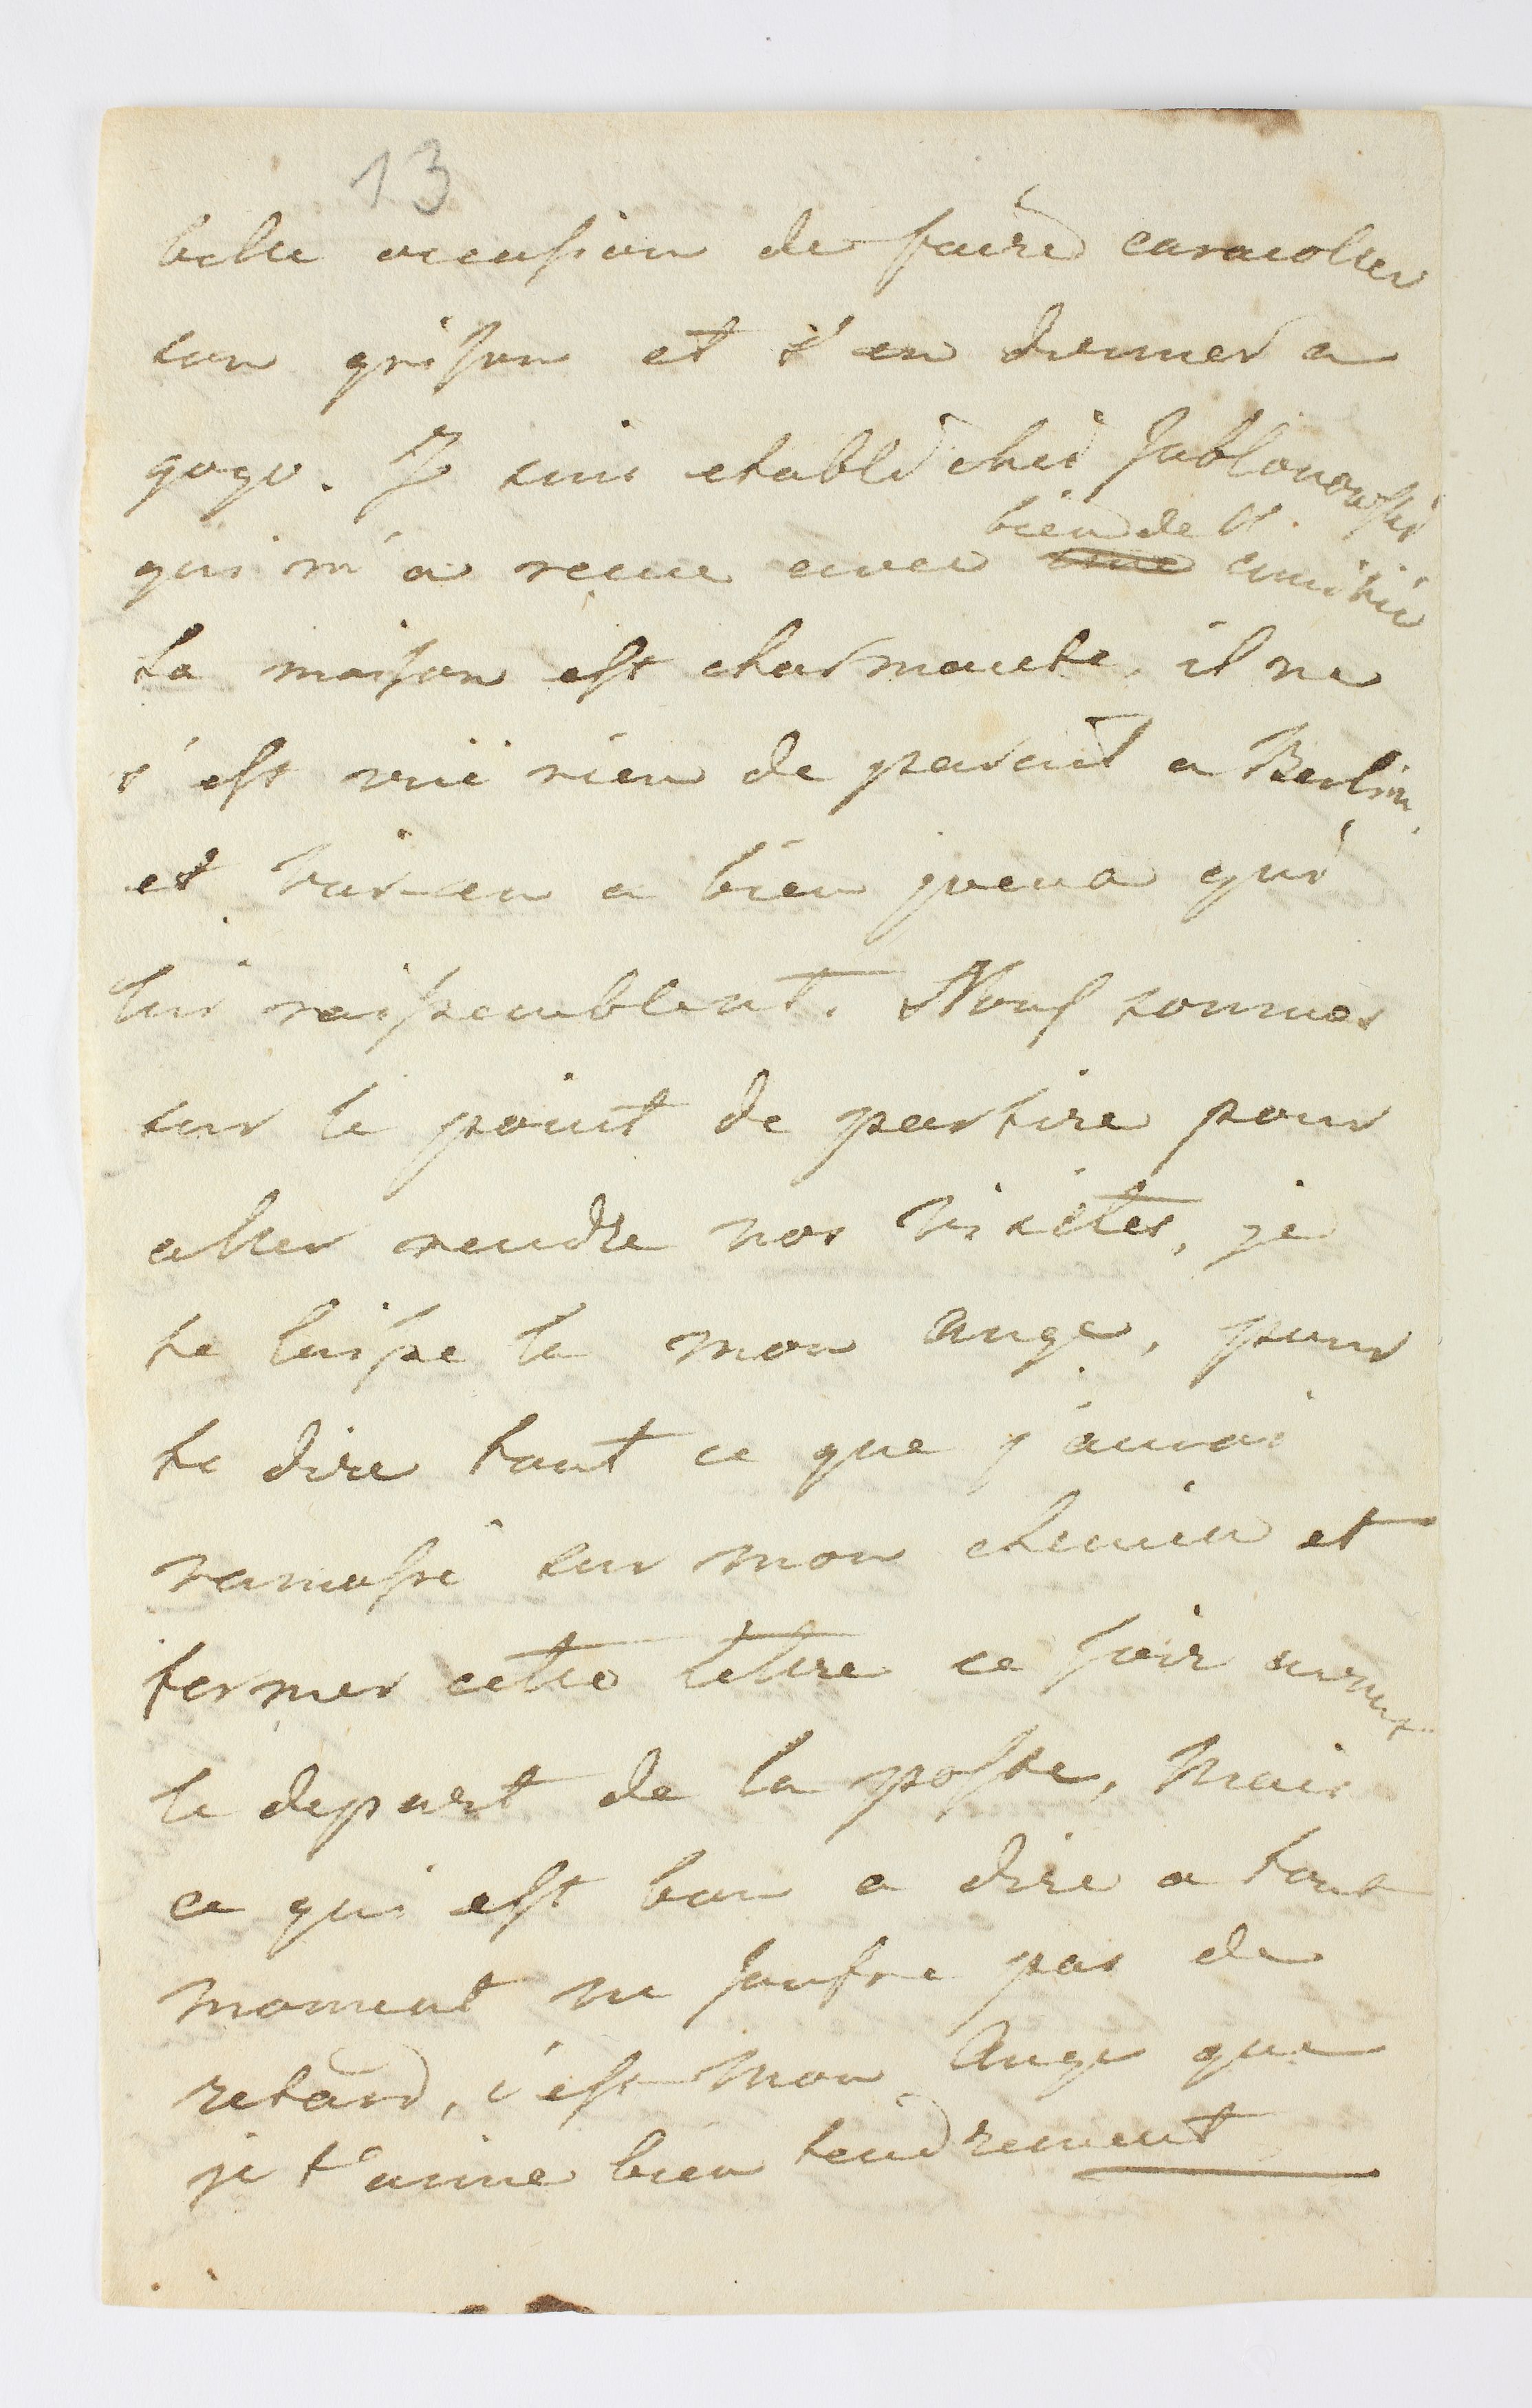 13
belle occasion de faire caracoller
son grison et s'en donner a
gogo. Je suis etabli chez Jablonowski
bien de l'
qui m'a recue avec une amitié
sa maison est charmante, il ne
s'est vuë rien de pareil a Berlin,
et a bien peu qui
lui raissemblent. Nous sommes
sur le point de partire pour
aller rendre nos visites, je
te laisse la mon ange, pour
te dire tout ce que j'aurai
ramassé sur mon chemin et
fermer cette lettre ce soir avant
le depart de la poste, mais
ce qui est bon a dire a tout
moment ne soufre pas de
retard, c'est mon Ange que
je t'aime bien tendrement